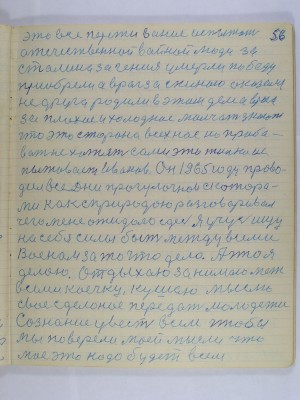 56
это все пусти вание испытает
отечественной вайной люди за
сталина за гения умерли победу
приобрели а враг за спиною оказался
не друга родили в этим дела врага
за плихае и холоднае малчат знают
что это сторана вечнае но приба–
ват не хотят сами эта тихая не
пытоваит Иванов. Он 1965 году прово–
дил все дни прогулочной с которо–
ми как с природою разговаривал
чего мене ожидало где Я учус ищу
на себа силы быт между всеми
Военам за то что дела. А то я
делаю, Отдыхаю занимаю меж
всеми коечку, кушаю мысль
свое сделоное передат молодежи
Сознание цвест всем чтобы
мы поверели моей мысли что
мое это надо будет всем